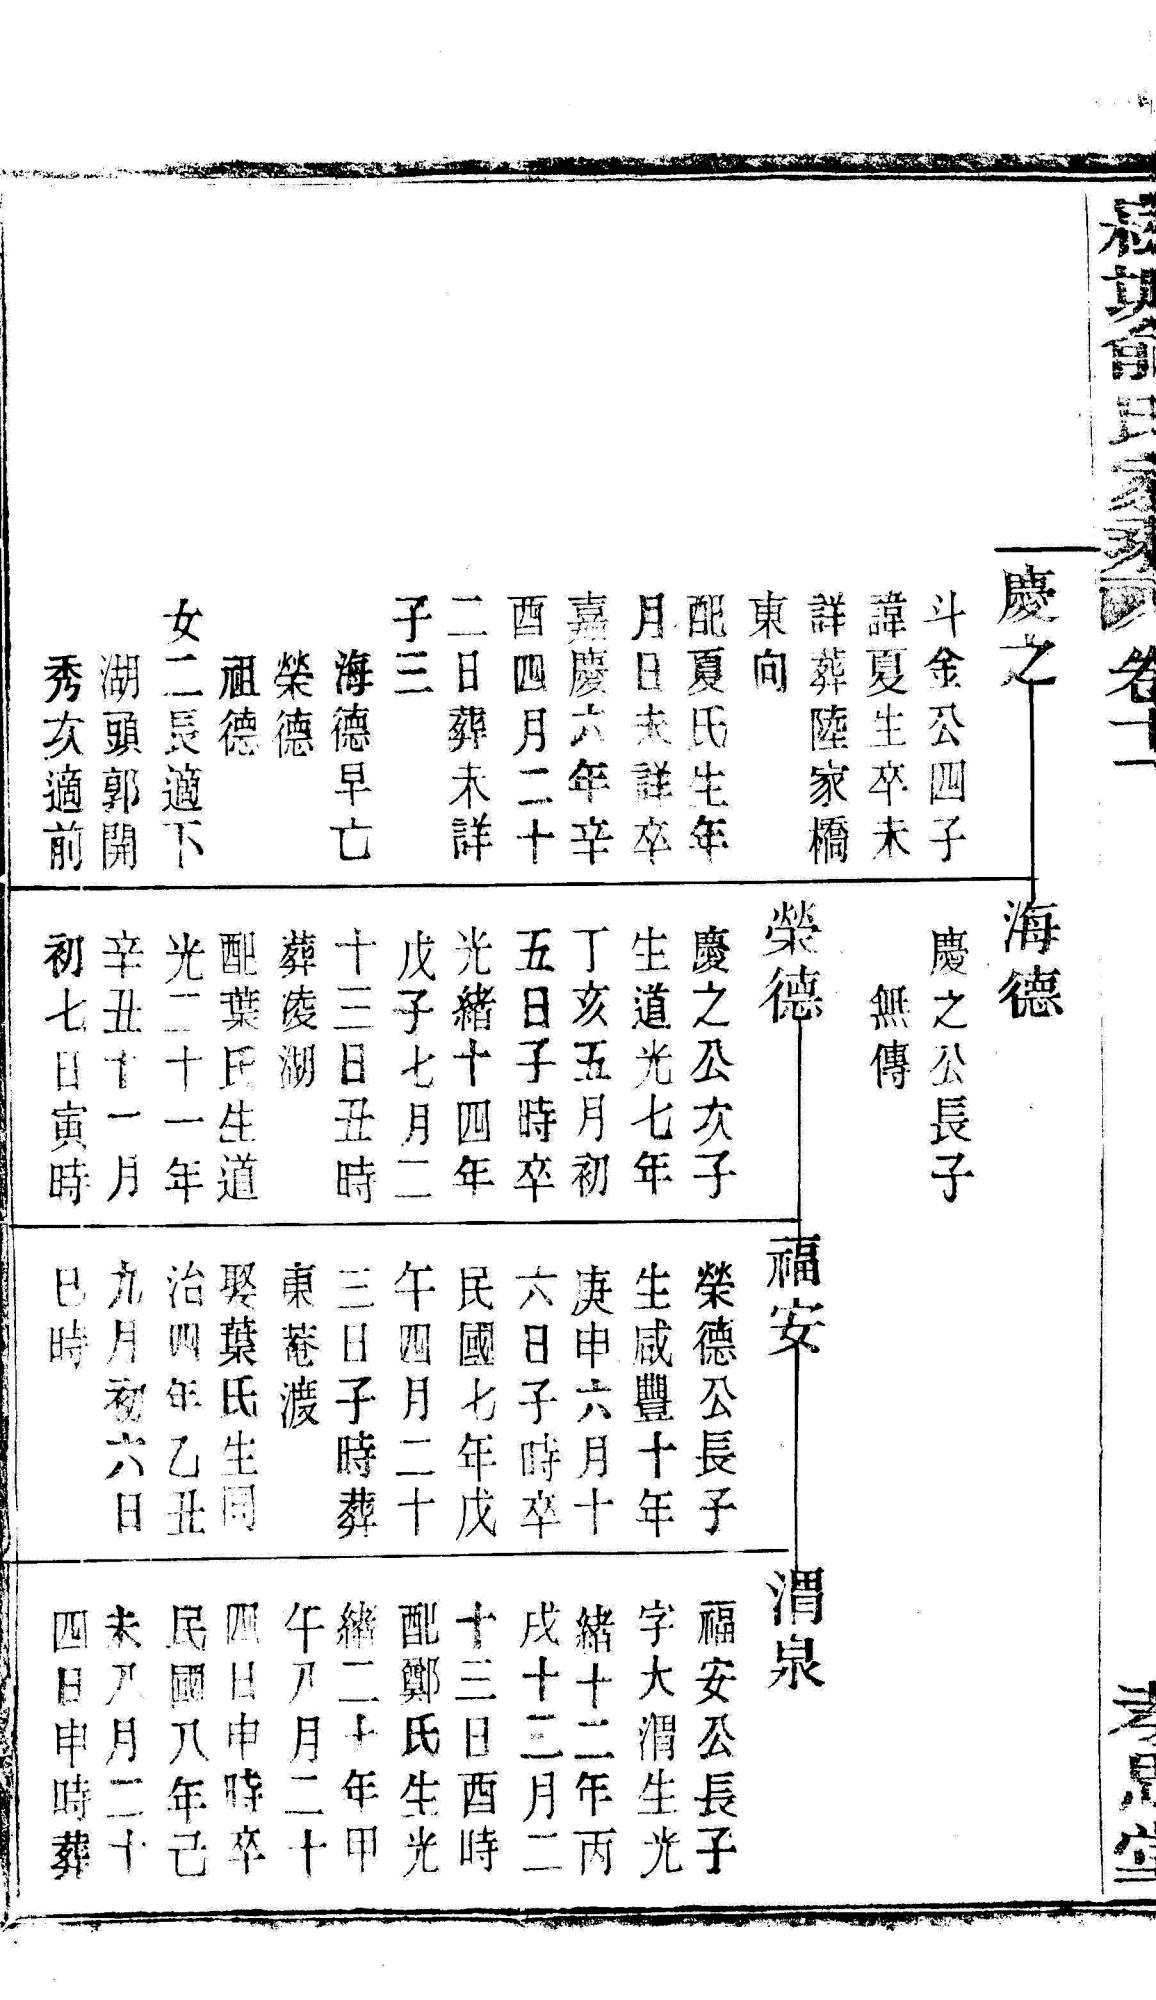 氏家乘
卷十一
慶之
斗金公四子
諱夏生卒未
詳葬陸家橋
東向
配夏氏生年
月日未詳卒
嘉慶六年辛
酉四月二十
二日葬未詳
子三
海德早亡
榮德
祖德
女二長適下
湖頭郭開
秀次適前
海德
慶之公長子
無傳
榮德
慶之公次子
生道光七年
丁亥五月初
五日子時卒
光緒十四年
戊子七月二
十三日丑時
葬淩湖
配葉氏生道
光二十一年
辛丑十一月
初七日寅時
福安
榮德公長子
生咸豐十年
庚申六月十
六日子時卒
民國七年戊
午四月二十
三日子時葬
東菴渡
娶葉氏生同
治四年乙丑
九月初六日
巳時
渭泉
福安公長子
字大渭生光
緒十二年丙
戌十二月二
十三日酉時
配鄭氏生光
緒二十年甲
午八月二十
四日申時卒
民國八年己
未八月二十
四日申時葬
孝思堂